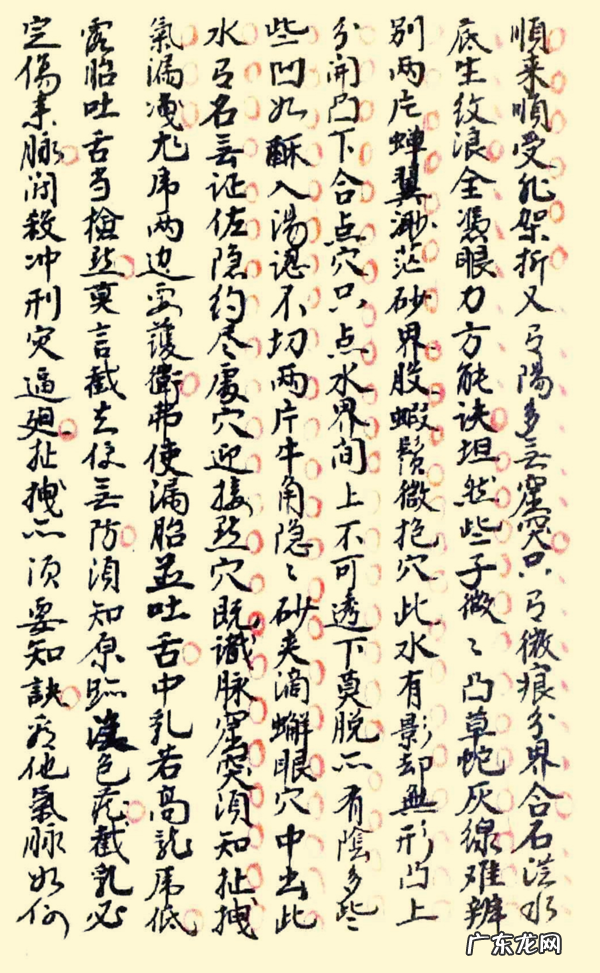 順来順受孔架折又弓陽多無窟突只弓微痕分界合石滛水
底生纹浪全凴眼力方能诀坦然些子微〻凸草蛇灰線难辨
别两片蝉翼渺茫砂界股蝦鬚微抱穴此水有影却無形凸上
分开凸下合点穴只点水界间上不可透下莫脱亦有陰多些
些凹如酥入湯認不切两片牛角隐〻砂夹滴蠏眼穴中出此
水弓名無证佐隐约尽處穴迎接點穴既識脉窟突須知扯拽
氣漏洩尤虎两边要護衛弗使漏胎並吐舌中乳若高龙虎低
露胎吐舌当檢點莫言截去便無防須知原跡色截乳必
定傷来脉闭殺冲刑灾逼廻扯拽亦須要知訣看他氣脉如何
广东龙网